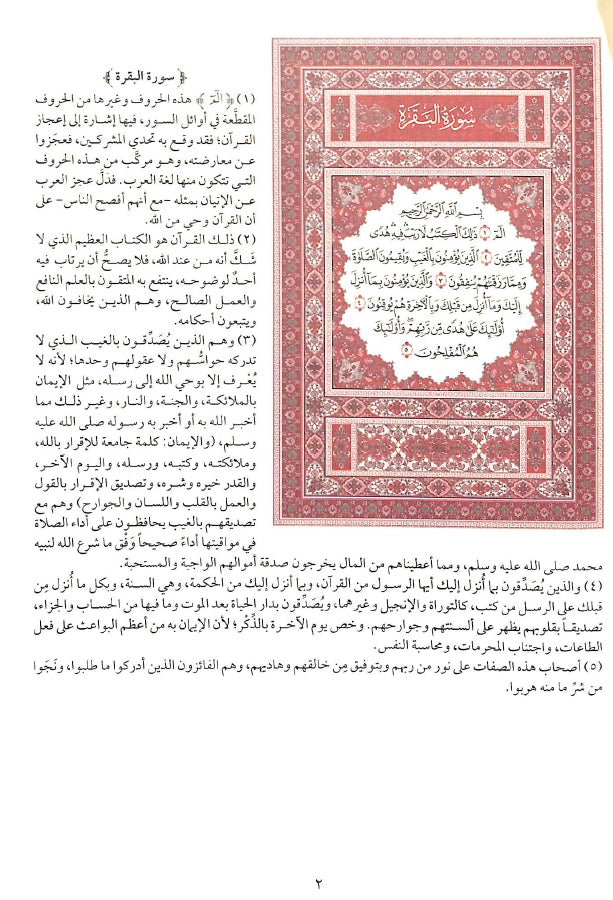 سُورَةُ البَقَرَةِ
بِسْمِ اللَّهِ الرَّحْمَٰنِ الرَّحِيمِ
الٓمٓ ١ ذَٰلِكَ ٱلْكِتَٰبُ لَا رَيْبَ ۛ فِيهِ ۛ هُدًى
لِّلْمُتَّقِينَ ٢ ٱلَّذِينَ يُؤْمِنُونَ بِٱلْغَيْبِ وَيُقِيمُونَ ٱلصَّلَوٰةَ
وَمِمَّا رَزَقْنَٰهُمْ يُنفِقُونَ ٣ وَٱلَّذِينَ يُؤْمِنُونَ بِمَآ أُنزِلَ
إِلَيْكَ وَمَآ أُنزِلَ مِن قَبْلِكَ وَبِٱلْءَاخِرَةِ هُمْ يُوقِنُونَ ٤
أُو۟لَٰٓئِكَ عَلَىٰ هُدًى مِّن رَّبِّهِمْ ۖ وَأُو۟لَٰٓئِكَ
هُمُ ٱلْمُفْلِحُونَ ٥
﴿سورة البقرة﴾
(١) ﴿الٓمٓ﴾ هذه الحروف وغيرها من الحروف
المقطَّعة في أوائل السور، فيها إشارة إلى إعجاز
القرآن؛ فقد وقع به تحدي المشركين، فعجَزوا
عن معارضته، وهو مركَّب من هذه الحروف
التي تتكون منها لغة العرب. فدَلَّ عجز العرب
عن الإتيان بمثله -مع أنهم أفصح الناس- على
أن القرآن وحي من الله.
(٢) ذلك القرآن هو الكتاب العظيم الذي لا
شَكَّ أنه من عند الله، فلا يصحُّ أن يرتاب فيه
أحدٌ لوضوحه، ينتفع به المتقون بالعلم النافع
والعمل الصالح، وهم الذين يخافون الله،
ويتبعون أحكامه.
(٣) وهم الذين يُصَدِّقون بالغيب الذي لا
تدركه حواسُّهم ولا عقولهم وحدها؛ لأنه لا
يُعْرف إلا بوحي الله إلى رسله، مثل الإيمان
بالملائكة، والجنة، والنار، وغير ذلك مما
أخبر الله به أو أخبر به رسوله صلى الله عليه
وسلم، (والإيمان: كلمة جامعة للإقرار بالله،
وملائكته، وكتبه، ورسله، واليوم الآخر،
والقدر خيره وشره، وتصديق الإقرار بالقول
والعمل بالقلب واللسان والجوارح) وهم مع
تصديقهم بالغيب يحافظون على أداء الصلاة
في مواقيتها أداءً صحيحاً وَفْق ما شرع الله لنبيه
محمد صلى الله عليه وسلم، ومما أعطيناهم من المال يخرجون صدقة أموالهم الواجبة والمستحبة.
(٤) والذين يُصَدِّقون بما أُنزل إليك أيها الرسول من القرآن، وبما أنزل إليك من الحكمة، وهي السنة، وبكل ما أُنزل مِن
قبلك على الرسل من كتب، كالتوراة والإنجيل وغيرهما، ويُصَدِّقون بدار الحياة بعد الموت وما فيها من الحساب والجزاء،
تصديقاً بقلوبهم يظهر على ألسنتهم وجوارحهم. وخص يوم الآخرة بالذِّكْر؛ لأن الإيمان به من أعظم البواعث على فعل
الطاعات، واجتناب المحرمات، ومحاسبة النفس.
(٥) أصحاب هذه الصفات على نور من ربهم وبتوفيق مِن خالقهم وهاديهم، وهم الفائزون الذين أدركوا ما طلبوا، ونَجَوا
من شرِّ ما منه هربوا.
٢